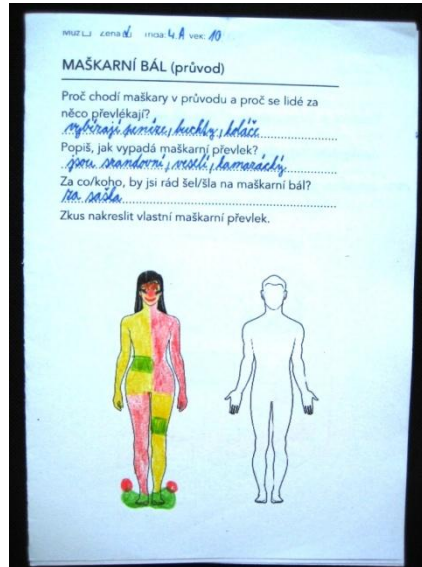 MUŽ žena třída: 4.A věk: 10
MAŠKARNÍ BÁL (průvod)
Proč chodí maškary v průvodu a proč se lidé za
něco převlékají?
vybírají peníze, buchty, koláče
Popiš, jak vypadá maškarní převlek?
jsou srandovní, veselí, kamarádský
Za co/koho, by jsi rád šel/šla na maškarní bál?
za šaška
Zkus nakreslit vlastní maškarní převlek.